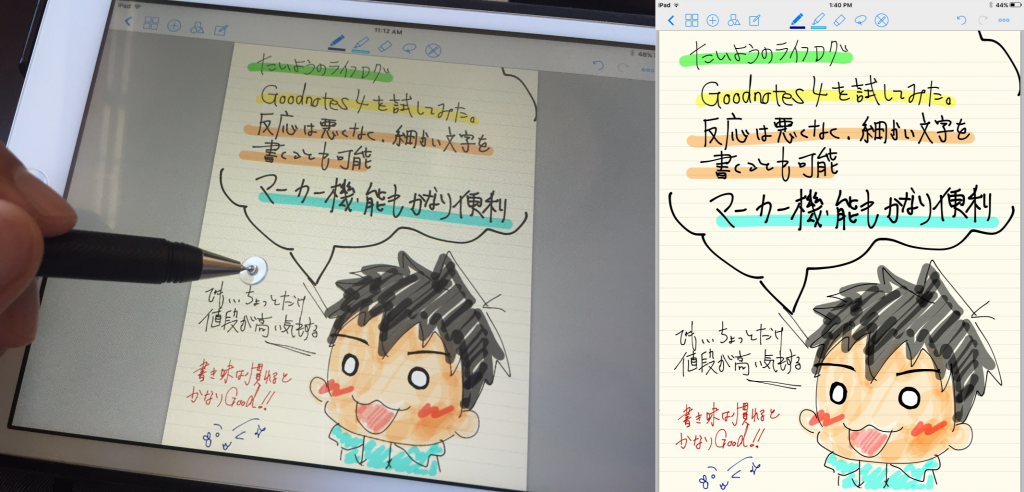 iPad
11:12 AM
48%
たいようのライフログ
Goodnotes 4を試してみた。
反応は悪くなく、細かい文字を
書くことも可能
マーカー機能もかなり便利
でも...ちょっとだけ
値段が高い気もする
書き味は慣れると
かなりGood!!
iPad
1:40 PM
44%
たいようのライフログ
Goodnotes 4を試してみた。
反応は悪くなく、細かい文字を
書くことも可能
マーカー機能もかなり便利
でも...ちょっとだけ
値段が高い気もする
書き味は慣れると
かなりGood!!